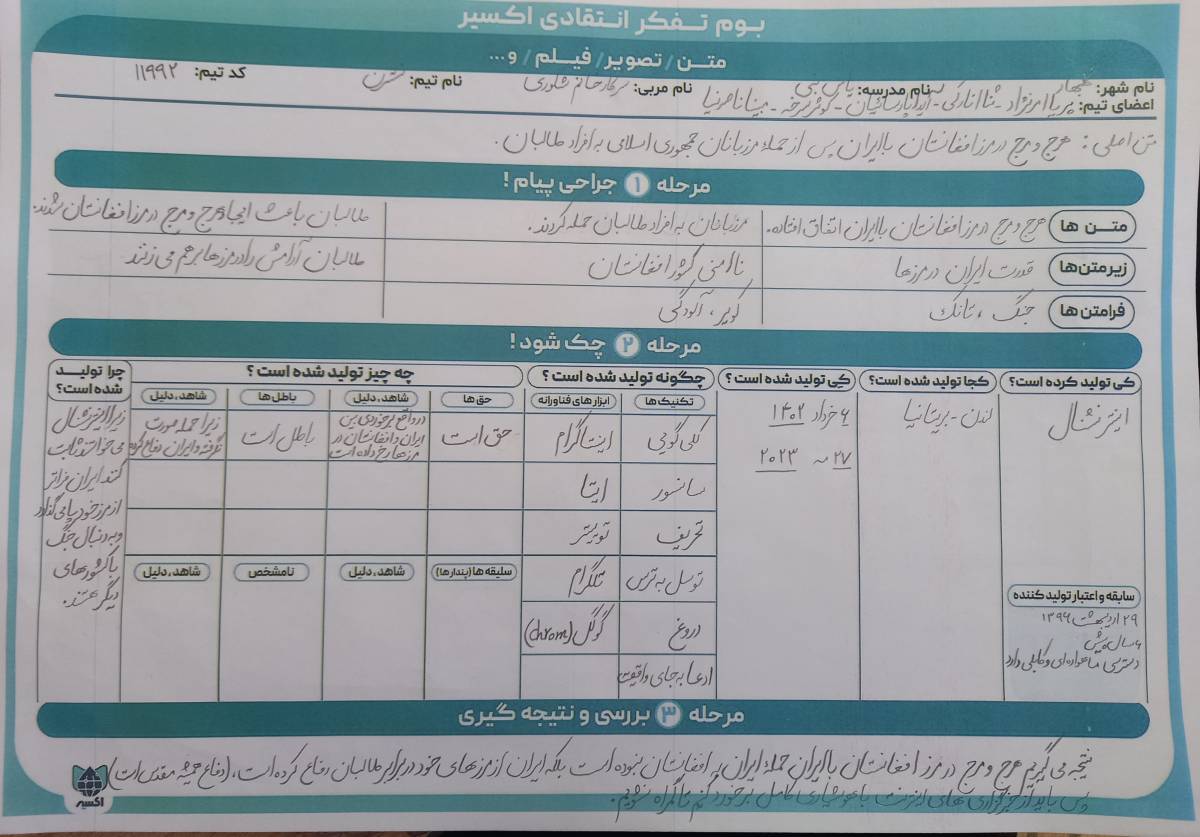 بوم تـفـکر انـتـقـادی اکـسیر
متـن / تصویر / فیـلـم / و...
نام شهر: نام مدرسه: نام مربی: سرکار خانم نام تیم: کد تیم: ۱۱۹۹۲
اعضای تیم:
متن اصلی: هرج و مرج در مرز افغانستان با ایران پس از حمله مرزبانان جمهوری اسلامی به افراد طالبان.
مرحله ۱ جراحی پیام!
متـــن ها هرج و مرج در مرز افغانستان با ایران اتفاق افتاده. مرزبانان به افراد طالبان حمله کردند. طالبان باعث ایجاد هرج و مرج در مرز افغانستان شدند.
زیرمتن‌ها قدرت ایران در مرزها ناامنی کشور افغانستان طالبان آرامش را در مرزها برهم می‌زنند
فرامتن‌ها جنگ، تانک کویر، آلودگی
مرحله ۲ چک شود!
کی تولید کرده است؟ کجا تولید شده است؟ کِی تولید شده است؟ چگونه تولید شده است؟ چه چیز تولید شده است؟ چرا تولیـــد شده است؟
تکنیک‌ها ابزارهای فناورانه حق‌ها شاهد، دلیل باطل‌ها شاهد، دلیل
اینترنشنال
لندن - بریتانیا
۶ خرداد ۱۴۰۲
۲۷ مه ۲۰۲۳
کلی گویی
سانسور
تحریف
توسل به ترس
دروغ
ادعا به جای واقعیت
اینستاگرام
ایتا
توییتر
تلگرام
گوگل (chrom)
حق است
در واقع برخوردی بین
ایران و افغانستان در
مرزها رخ داده است
باطل است
زیرا حمله صورت
نگرفته و ایران دفاع کرده
زیرا اینترنشنال
می‌خواهد ثابت
کند ایران فراتر
از مرز خود پا می‌گذارد
و به دنبال جنگ
با کشورهای
دیگر هستند.
سلیقه‌ها (پندارها) شاهد، دلیل نامشخص شاهد، دلیل
سابقه و اعتبار تولید کننده
۲۹ اردیبهشت ۱۳۹۶
۶ سال پیش
دسترسی ماهواره‌ای و کابلی دارد
مرحله ۳ بررسی و نتیجه گیری
نتیجه می‌گیریم هرج و مرج در مرز افغانستان با ایران حمله ایران به افغانستان نبوده است بلکه ایران از مرزهای خود در برابر طالبان دفاع کرده است، (دفاع همیشه مقدس است)
پس باید از خبرگزاری های اینترنت با هوشیاری کامل برخورد کنیم تا گمراه نشویم.
اکسیر